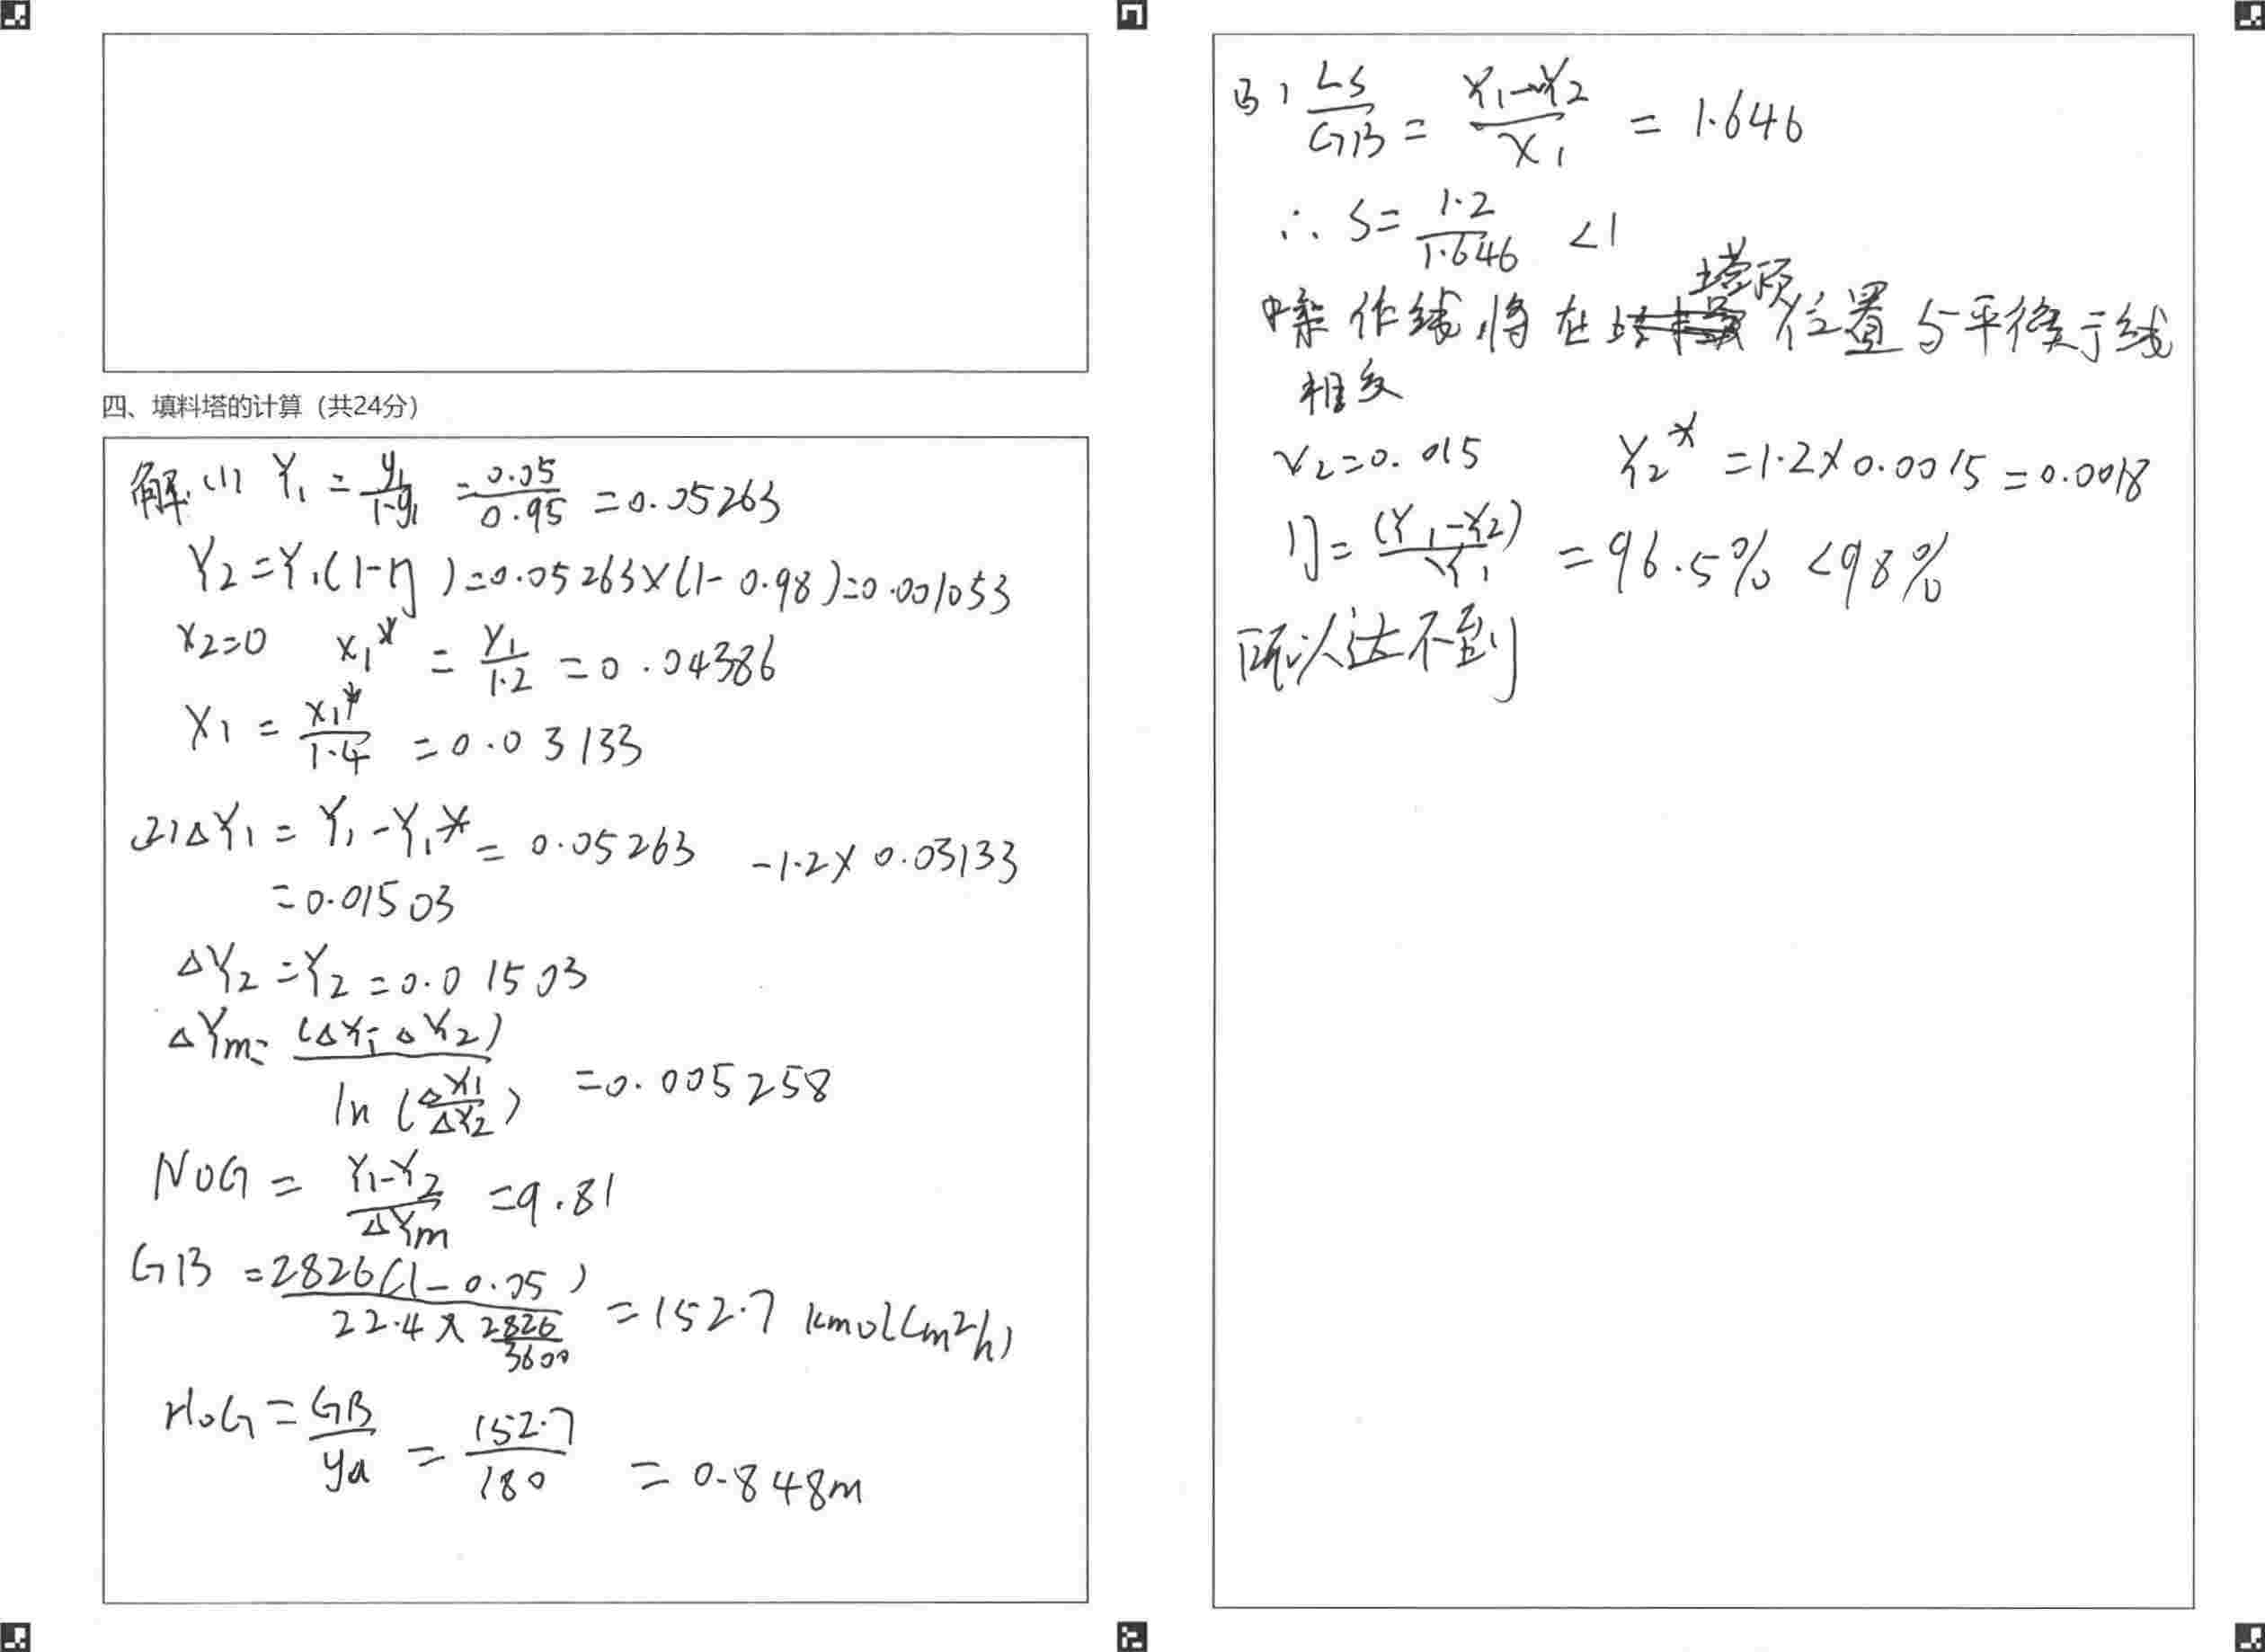 四、填料塔的计算（共24分）
解:(1) Y₁ = y₁/(1-y₁) = 0.05/0.95 = 0.05263
Y₂ = Y₁(1-η) = 0.05263×(1-0.98) = 0.001053
X₂=0 X₁* = Y₁/1.2 = 0.04386
X₁ = X₁*/1.4 = 0.03133
(2) ΔY₁ = Y₁-Y₁* = 0.05263 -1.2×0.03133
=0.01503
ΔY₂ = Y₂ = 0.01503
ΔYm = (ΔY₁-ΔY₂)/ln(ΔY₁/ΔY₂) = 0.005258
NOG = (Y₁-Y₂)/ΔYm = 9.81
GB = 2826(1-0.05)/(22.4×2826/3600) = 152.7 kmol(m²h)
HOG = GB/ya = 152.7/180 = 0.848m
(3) LS/GB = (Y₁-Y₂)/X₁ = 1.646
∴ S = 1.2/1.646 <1
操作线将在塔顶位置与平衡线
相交
X₂=0.015 Y₂* = 1.2×0.0015 = 0.0018
η = (Y₁-Y₂)/Y₁ = 96.5% <98%
所以达不到